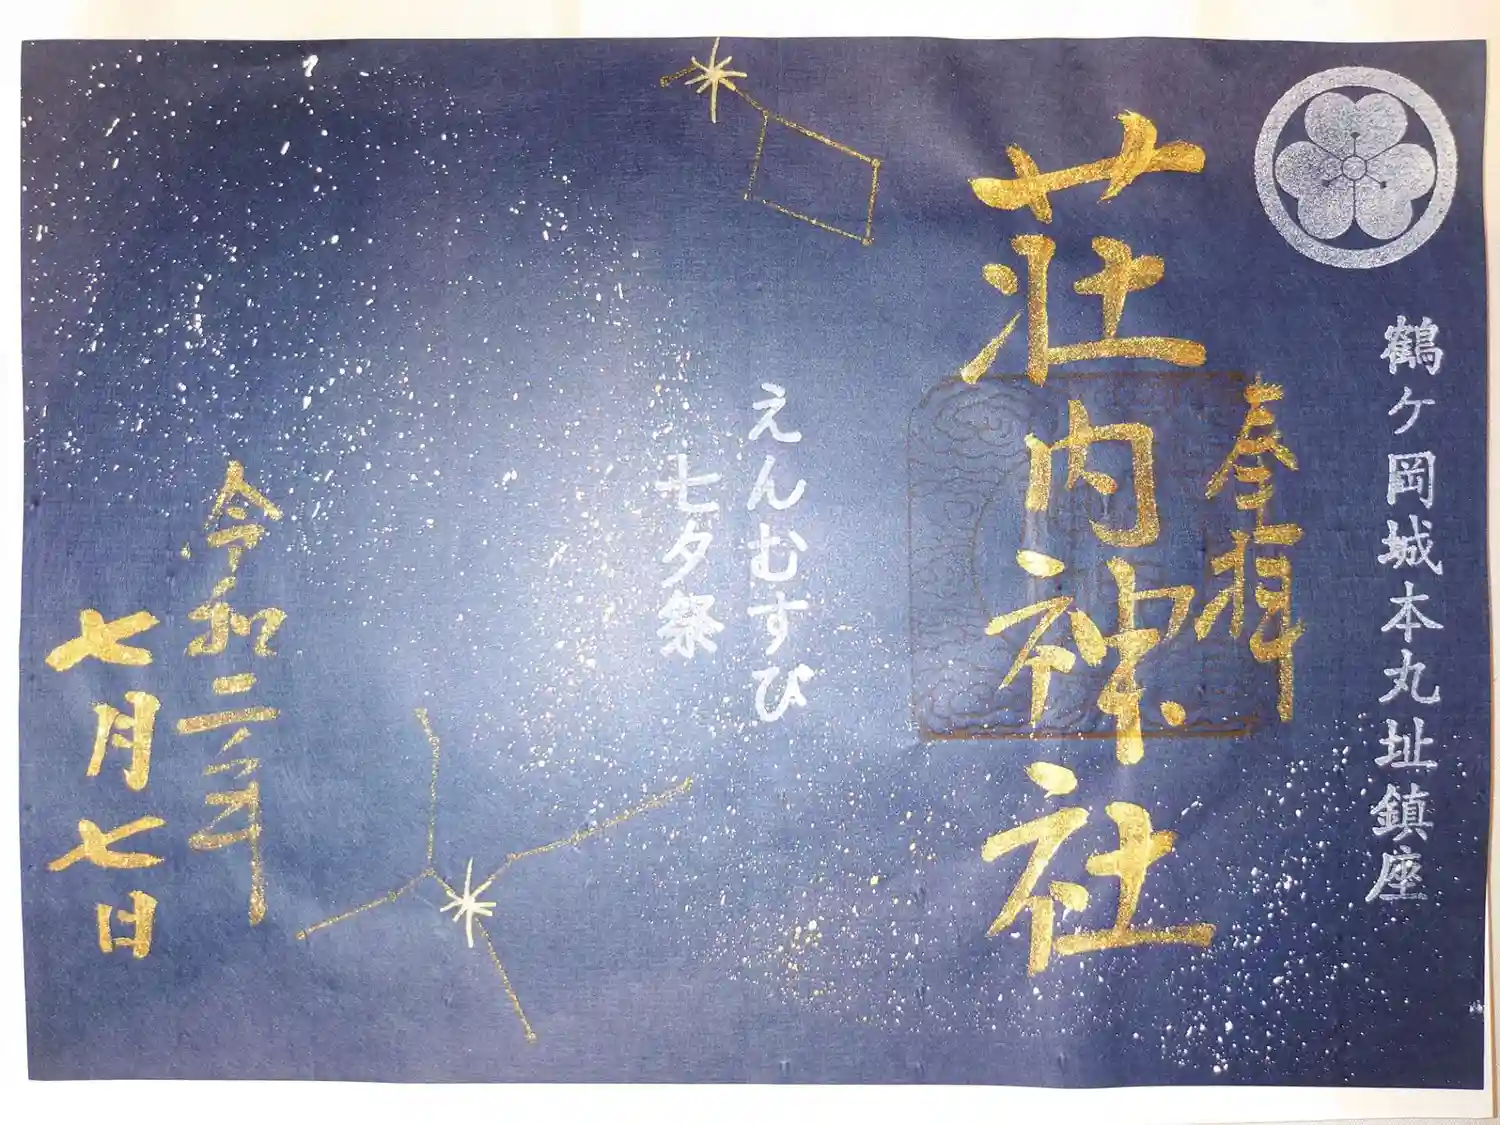 鶴ヶ岡城本丸址鎮座
奉拝
荘内神社
えんむすび
七夕祭
令和二年
七月七日